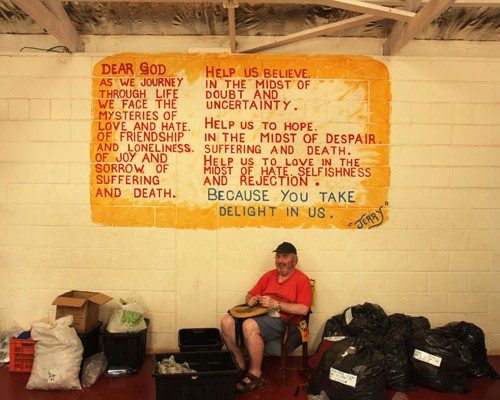 DEAR GOD
AS WE JOURNEY
THROUGH LIFE
WE FACE THE
MYSTERIES OF
LOVE AND HATE.
OF FRIENDSHIP
AND LONELINESS.
OF JOY AND
SORROW. OF
SUFFERING
AND DEATH.
HELP US BELIEVE.
IN THE MIDST OF
DOUBT AND
UNCERTAINTY.
HELP US TO HOPE.
IN THE MIDST OF DESPAIR.
SUFFERING AND DEATH.
HELP US TO LOVE IN THE
MIDST OF HATE, SELFISHNESS
AND REJECTION.
BECAUSE YOU TAKE
DELIGHT IN US.
"JERRY"